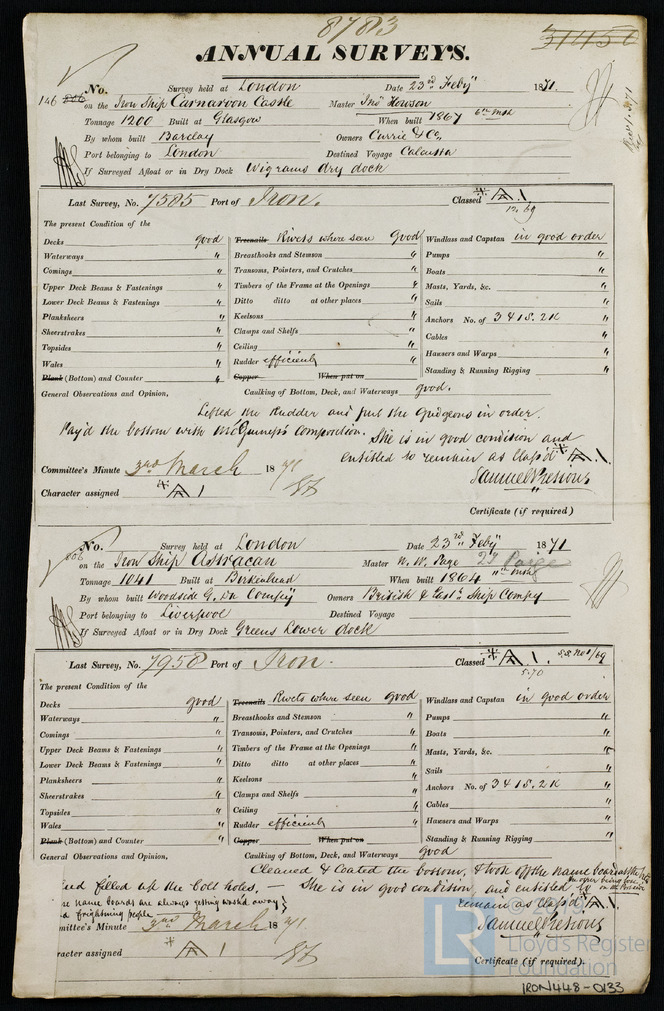 8783
31456
ANNUAL SURVEYS.
146 806 No. Survey held at London Date 23rd Feby 1871.
on the Iron Ship Carnarvon Castle Master Jno Howson
Tonnage 1200 Built at Glasgow When built 1867 6th Mth
By whom built Barclay Owners Currie & Co.
Port belonging to London Destined Voyage Calcutta
If Surveyed Afloat or in Dry Dock Wigrams dry dock
Last Survey, No. 7585 Port of Iron. Classed A.1
12.69
The present Condition of the
Decks good Treenails Rivets where seen Good Windlass and Capstan in good order
Waterways " Breasthooks and Stemson " Pumps "
Comings " Transoms, Pointers, and Crutches " Boats "
Upper Deck Beams & Fastenings " Timbers of the Frame at the Openings " Masts, Yards, &c. "
Lower Deck Beams & Fastenings " Ditto ditto at other places " Sails "
Planksheers " Keelsons " Anchors No. of 3 4 1S. 2K "
Sheerstrakes " Clamps and Shelfs " Cables "
Topsides " Ceiling " Hausers and Warps "
Wales " Rudder efficient Standing & Running Rigging "
Plank (Bottom) and Counter " Copper When put on
General Observations and Opinion, Caulking of Bottom, Deck, and Waterways good.
Lifted the Rudder and put the Gudgeons in order.
Pay'd the bottom with composition. She is in good condition and
entitled to remain as Class'd A.1.
Committee's Minute 3rd March 1871
Character assigned A 1
Certificate (if required)
806 No. Survey held at London Date 23rd Feby 1871
on the Iron Ship Astracan Master W. W. Paige Paige
Tonnage 1041 Built at Birkenhead When built 1864 Mth
By whom built Woodside G. D. Company Owners British & East Ship Compy
Port belonging to Liverpool Destined Voyage
If Surveyed Afloat or in Dry Dock Greens Lower dock
Last Survey, No. 7958 Port of Iron. Classed A.1. S.S. No 1/69
5.70
The present Condition of the
Decks good Treenails Rivets where seen good Windlass and Capstan in good order
Waterways " Breasthooks and Stemson " Pumps "
Comings " Transoms, Pointers, and Crutches " Boats "
Upper Deck Beams & Fastenings " Timbers of the Frame at the Openings " Masts, Yards, &c. "
Lower Deck Beams & Fastenings " Ditto ditto at other places " Sails "
Planksheers " Keelsons " Anchors No. of 3 4 1S. 2K "
Sheerstrakes " Clamps and Shelfs " Cables "
Topsides " Ceiling " Hausers and Warps "
Wales " Rudder efficient Standing & Running Rigging "
Plank (Bottom) and Counter " Copper When put on
General Observations and Opinion, Caulking of Bottom, Deck, and Waterways good
Cleaned & Coated the bottom, & took off the name boards
filled up the bolt holes, — She is in good condition, and entitled to
name boards are always getting washed away remain as Class'd A.1.
frightning people
mmittee's Minute 3rd March 1871
racter assigned A 1
Certificate (if required).
Lloyd's Register
Foundation
IRON448-0133